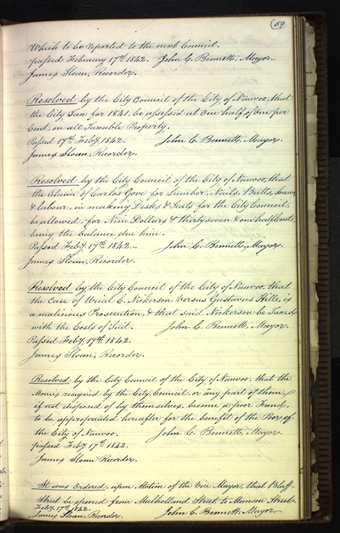 59.
Which to be reported to the next Council.
passed February 17th 1842. John C. Bennett, Mayor.
James Sloan, Recorder.
Resolved by the City Council of the City of Nauvoo, that
the City Tax for 1841, be assessed at One half of One per
Cent, on all Taxable Property.
Passed 17th Feby. 1842. John C. Bennett, Mayor.
James Sloan, Recorder.
Resolved by the City Council of the City of Nauvoo, that
the Claim of Carlos Gove for Lumber, Nails, Butts, Screws
& labour, in making Desks & Seats for the City Council,
be allowed, for Nine Dollars & thirtyseven & one half Cents,
being the balance due him.
Passed Feby. 17th 1842. John C. Bennett, Mayor.
James Sloan, Recorder.
Resolved by the City Council of the City of Nauvoo, that
the case of Uriel C. Nickerson Versus Gustavus Hills, is
a malicious Prosecution, & that said Nickerson be Taxed
with the Costs of Suit. John C. Bennett, Mayor.
Passed Feby. 17th 1842.
James Sloan, Recorder.
Resolved by the City Council of the City of Nauvoo, that the
Monies resigned by the City Council, or any part of them, &
if not disposed of by themselves, become a poor Fund,
to be appropriated hereafter for the benefit of the Poor of
the City of Nauvoo. John C. Bennett, Mayor.
passed Feby. 17th 1842.
James Sloan Recorder.
It was Ordered, upon Motion of the Vice Mayor, that Bluff
Street be opened from Mulholland Street to Munson Street.
Feby. 17th 1842.
James Sloan, Recorder. John C. Bennett, Mayor